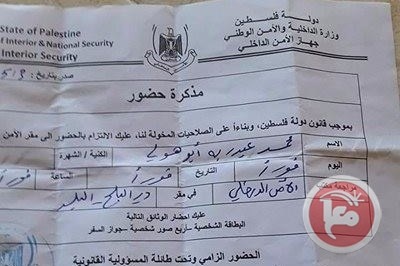 State of Palestine
of Interior & National Security
Interior Security
دولة فلسطين
وزارة الداخلية والأمن الوطني
جهاز الأمن الداخلي
صدر بتاريخ:
مذكرة حضور
بموجب قانون دولة فلسطين، وبناءاً على الصلاحيات المخولة لنا، عليك الالتزام بالحضور الى مقر الأمن
الاسم محمد عبد ربه أبو هولي الكنية / الشهرة
اليوم فوراً التاريخ فوراً الساعة فوراً
في مقر دير البلح البلد
عليك احضار الوثائق التالية
البطاقة الشخصية -أربع صور شخصية -جواز السفر
الحضور الزامي وتحت طائلة المسؤولية القانونية
معا